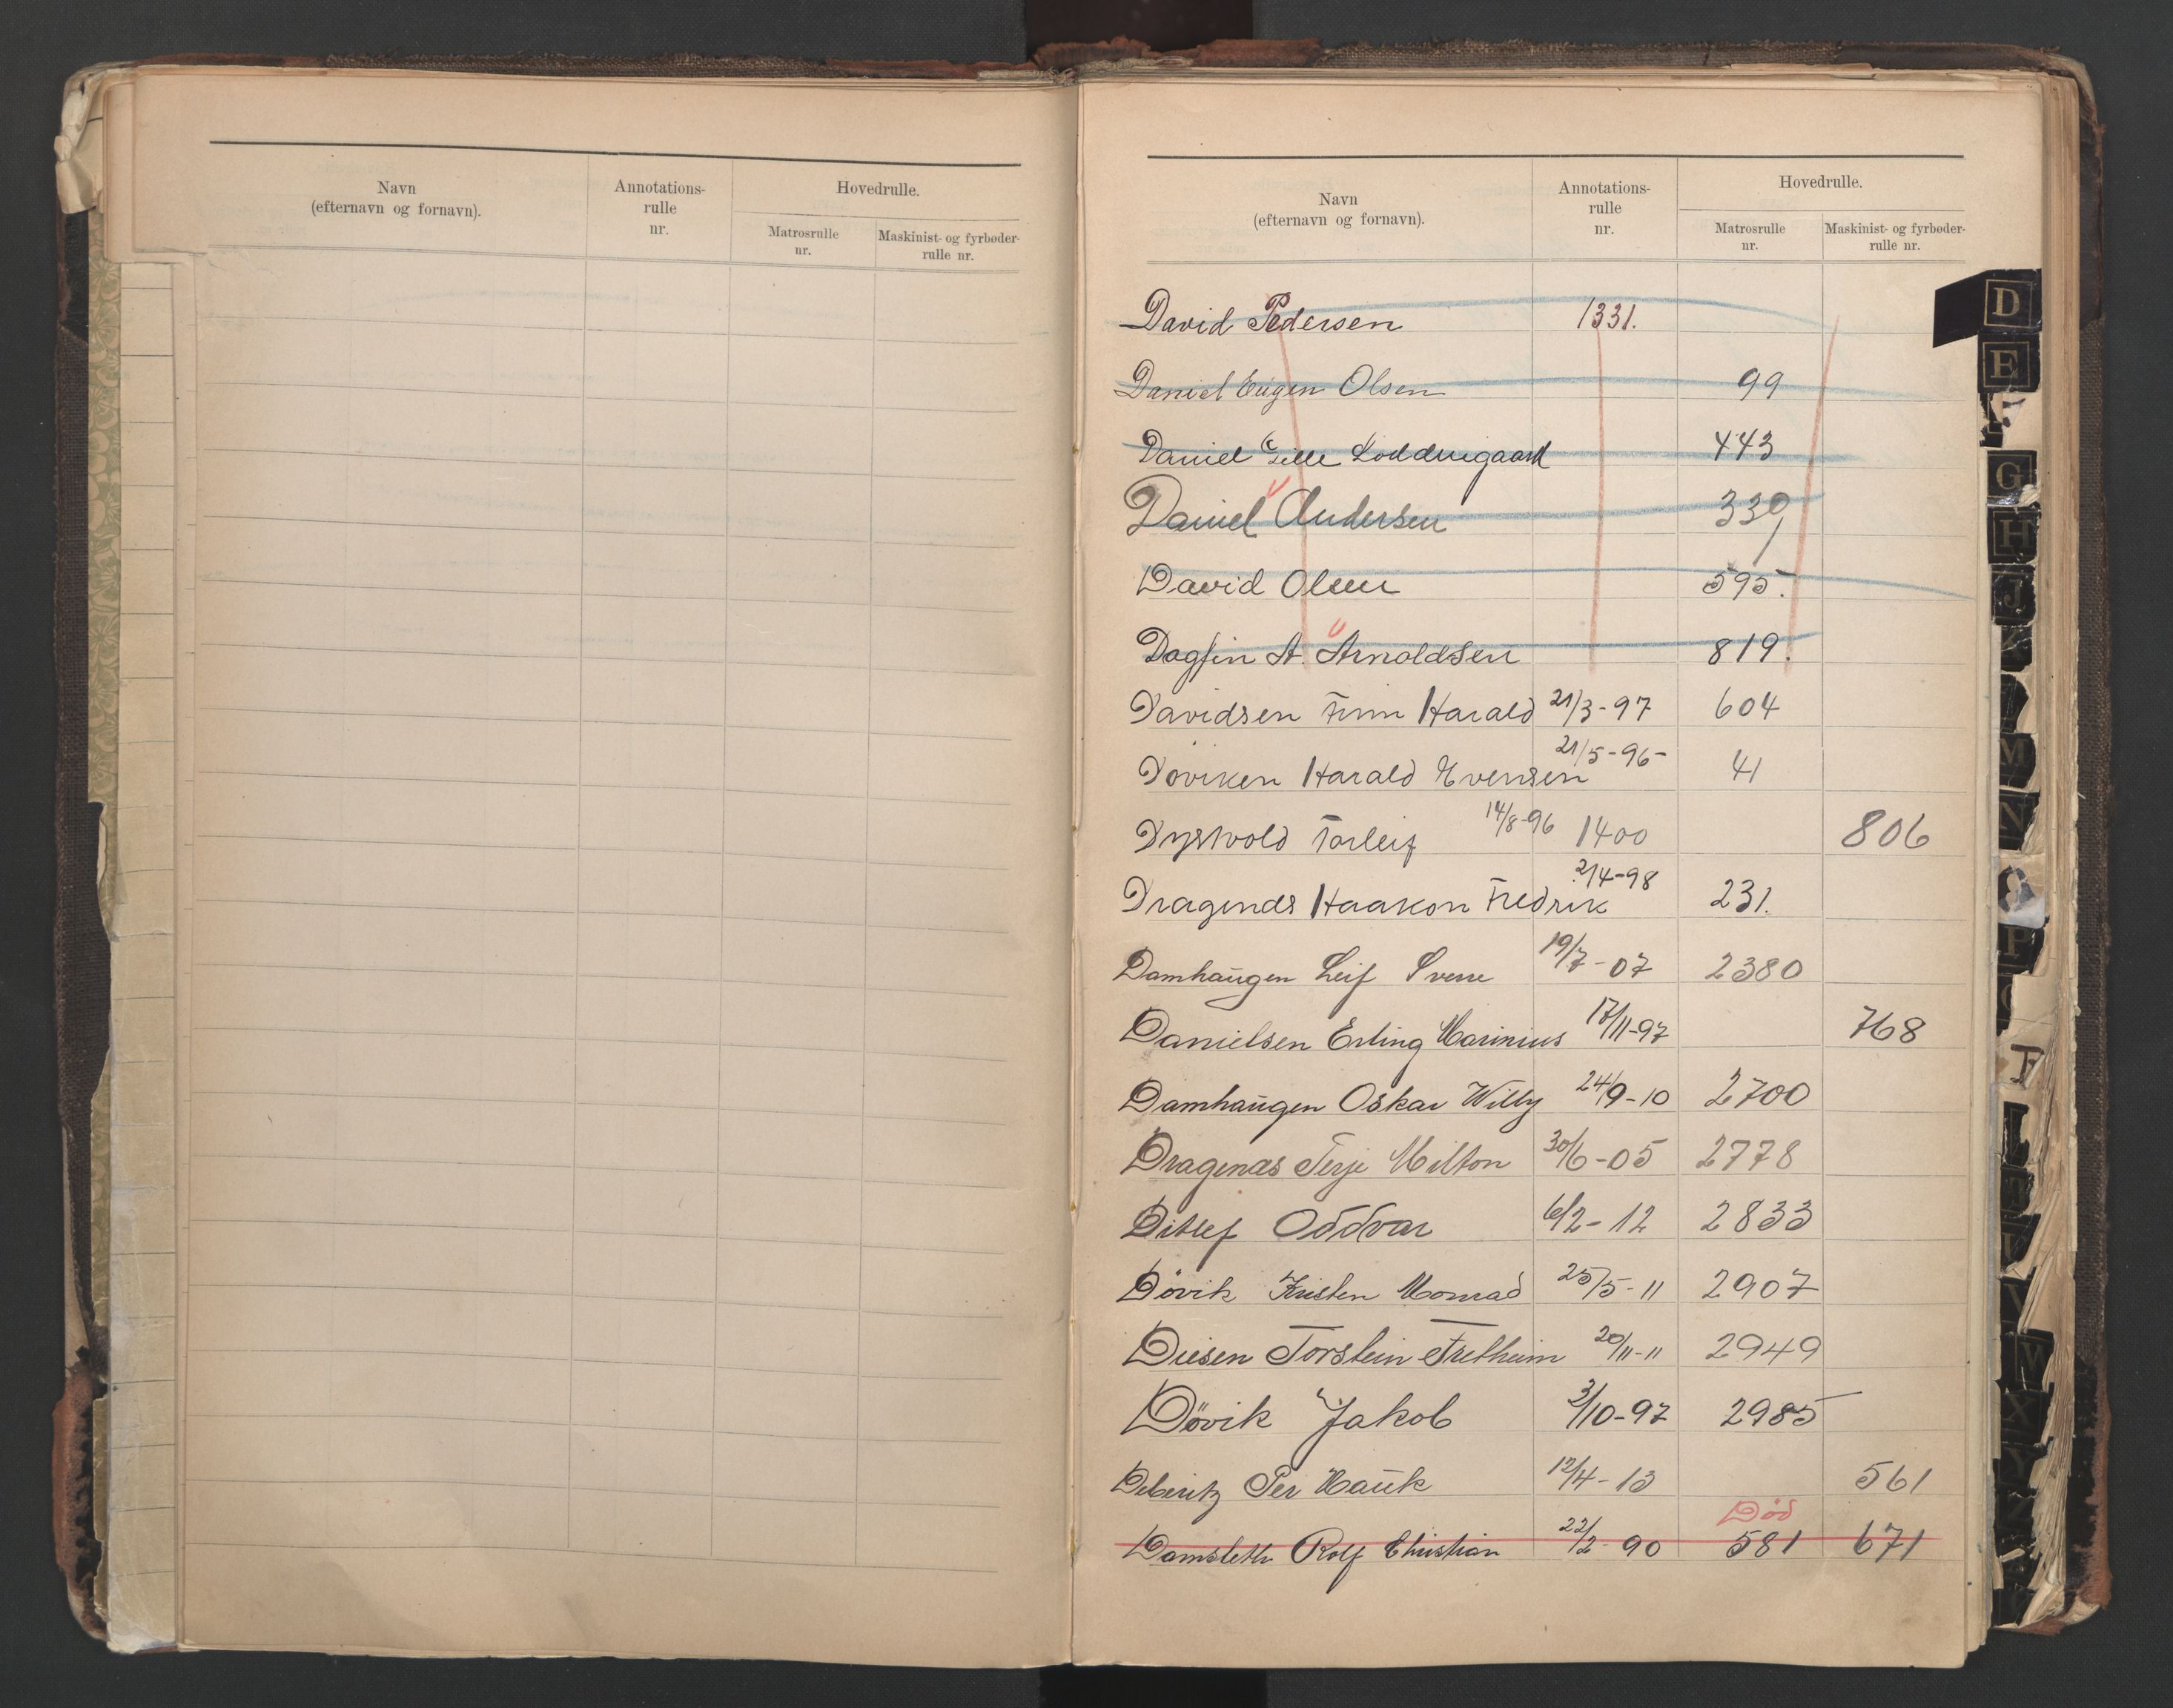 Navn
(efternavn og fornavn).
Annotations-
rulle
nr.
Hovedrulle.
Matrosrulle
nr.
Maskinist- og fyrbøder-
rulle nr.
Navn
(efternavn og fornavn).
Annotations-
rulle
nr.
Hovedrulle.
Matrosrulle
nr.
Maskinist- og fyrbøder-
rulle nr.
David Pedersen 1331.
Daniel Eugen Olsen 99
Daniel 443
Daniel Andersen 330
David Olsen 595.
Dagfin A. Arnoldsen 819.
Davidsen Finn Harald 21/3-97 604
Døviken Harald Evensen 21/5-96- 41
Dystvold Torleif 14/8-96 1400 806
Dragenæs Haakon Fredrik 2/4-98 231.
Damhaugen Leif Sverre 19/7-07 2380
Danielsen Erling Marinius 17/11-97 768
Damhaugen Oskar Willy 24/9-10 2700
Dragenæs Terje Milton 30/6-05 2778
Ditlef Oddvar 6/2-12 2833
Døvik Kristen Monrad 25/5-11 2907
Diesen Torstein Fretheim 20/11-11 2949
Døvik Jakob 3/10-97 2985
Deberitz Per Hauk 12/4-13 561
Død
Damsleth Rolf Christian 22/2-90 581 671
D
E
F
G
H
J
K
M
N
P
W
X
Y
Z